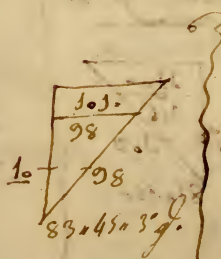 1.01.
98
10 98
83.45.3